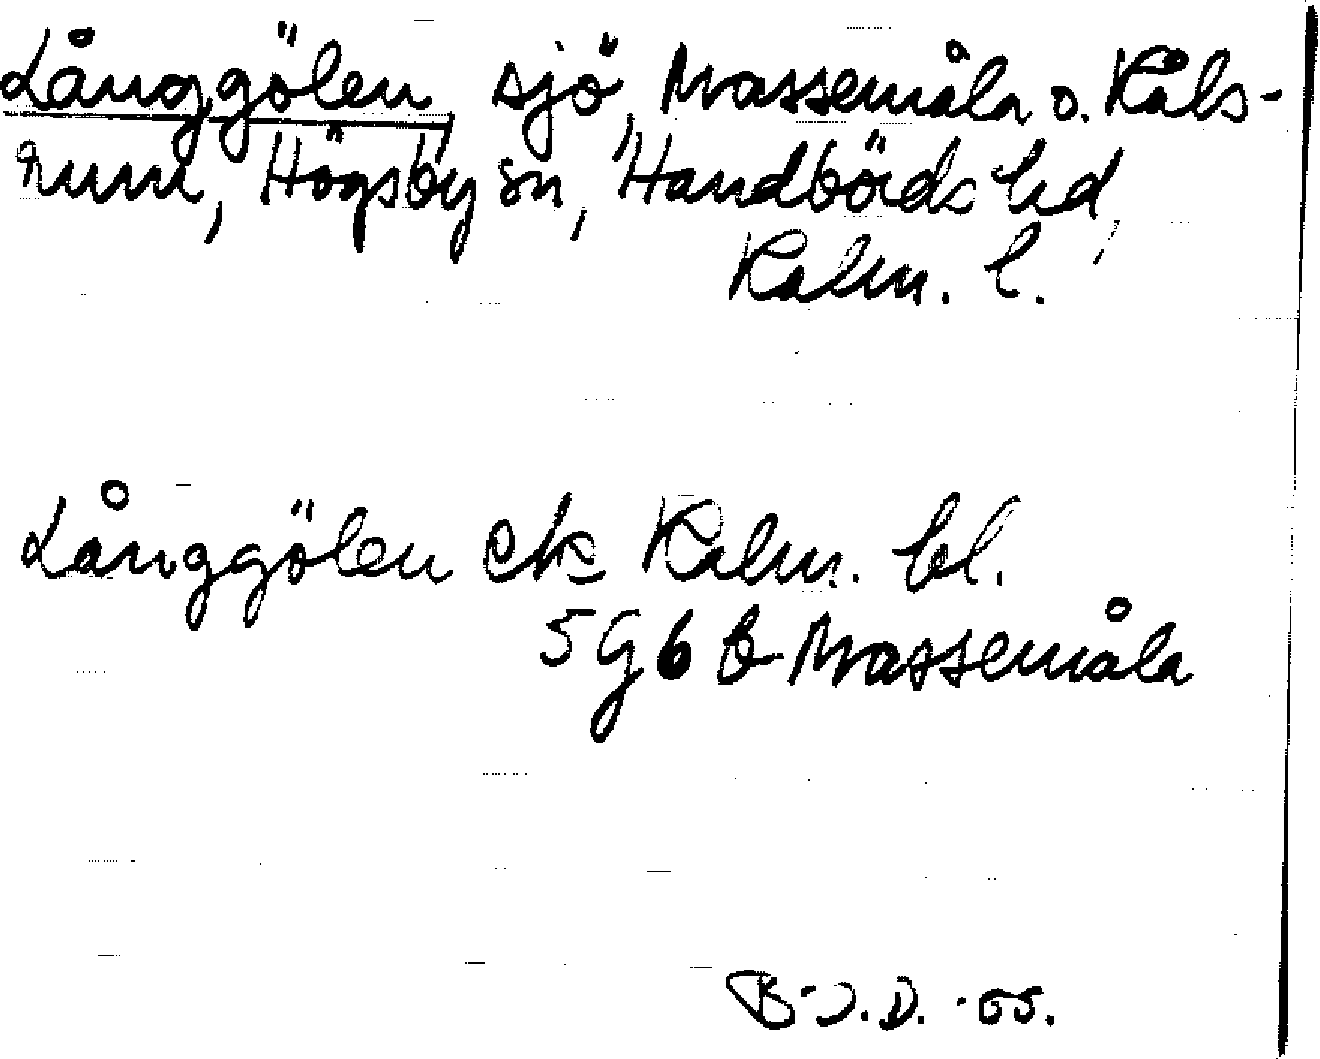 Långgölen, sjö, Massemåla o. Råls-
rum, Högsby sn, Handbörds hd,
Kalm. l.
Långgölen ek Kalm. bl.
5G6b Massemåla
B-J.D. -65.